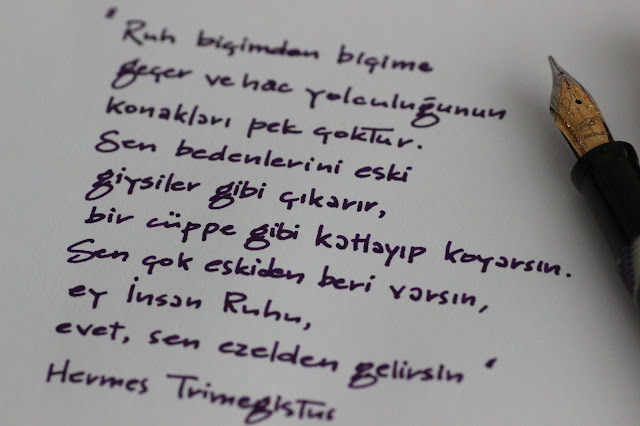 " Ruh biçimden biçime
geçer ve hac yolculuğunun
konakları pek çoktur.
Sen bedenlerini eski
giysiler gibi çıkarır,
bir cüppe gibi katlayıp koyarsın.
Sen çok eskiden beri varsın,
ey İnsan Ruhu,
evet, sen ezelden gelirsin "
Hermes Trimegistus